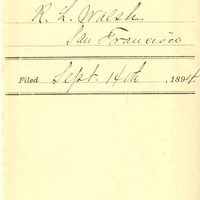 R. L. Walsh.
San Francisco
Filed Sept. 14th, 1894.